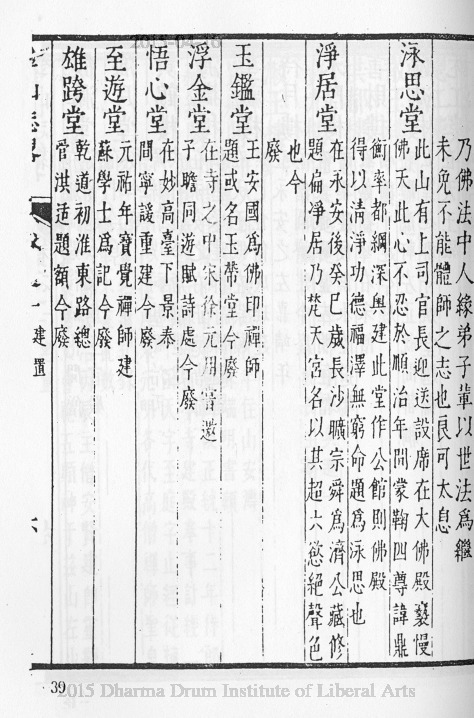 乃佛法中人緣弟子輩以世法爲繼
未免不能體師之志也良可太息
泳思堂
此山有上司官長迎送設席在大佛殿褻慢
佛天此心不忍於順治年間蒙鞠四尊諱鼎
衡率都綱深輿建此堂作公館則佛殿
得以清淨功德福澤無窮命題爲泳思也
淨居堂
在永安後癸巳歲長沙曠宗舜爲濟公藏修
題扁淨居乃梵天宮名以其超六慾絕聲色
也今
廢
玉鑑堂
王安國爲佛印禪師
題或名玉帶堂今廢
浮金堂
在寺之中宋徐元用甞邀
子瞻同遊賦詩處今廢
悟心堂
在妙高臺下景泰
間寧謖重建今廢
至遊堂
元祐年寶覺禪師建
蘇學士爲記今廢
雄跨堂
乾道初淮東路總
管洪适題額今廢
金山志畧
建置
六
39
2015 Dharma Drum Institute of Liberal Arts